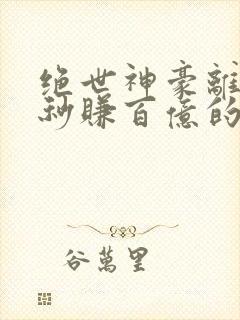 绝世神豪離
秒賺百億的
谷萬里